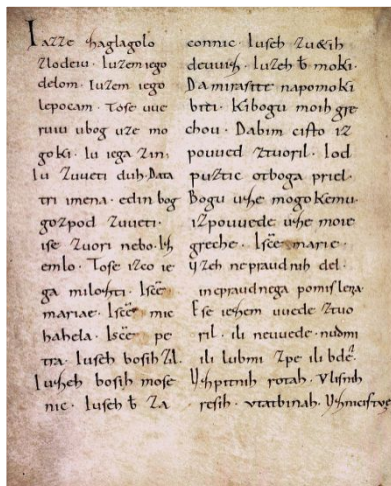 Iazze zaglagolo
zlodeiu. Iuzem iego
delom. Iuzem iego
lepocam. Tose uue
ruiu ubog uze mo
goki. Iu iega zin.
Iu zuueti duh. Data
tri imena. edin bog
gozpod zuueti.
ise zuori nebo. Isz
emlo. Tose izco ie
ga milosti. Isc̃e
mariae. Isc̃e mic
hahela. Isc̃e pe
tra. Iuseh bosih zil.
Iuzseh bosih mose
nic. Iuseh b̃ za
connic. Iuseh zuetih
deuuiz. Iuzeh b̃ moki.
Da mi rasite napomoki
biti. Kibogu moih gre
chou. Dabim cisto iz
pouued ztuoril. Iod
puztic otboga priel.
Bogu uze mogokemu.
izpouuede uze moie
greche. Isc̃e marie.
Vzeh nepraudnih del.
inepraudnega pomislera.
Ese iezem uuede ztuo
ril. ili neuuede. nudmi
ili lubmi zpe ili bde.
Vzpitnih rotah. Vlisnih
resih. Vtatbinah. Vznicistve